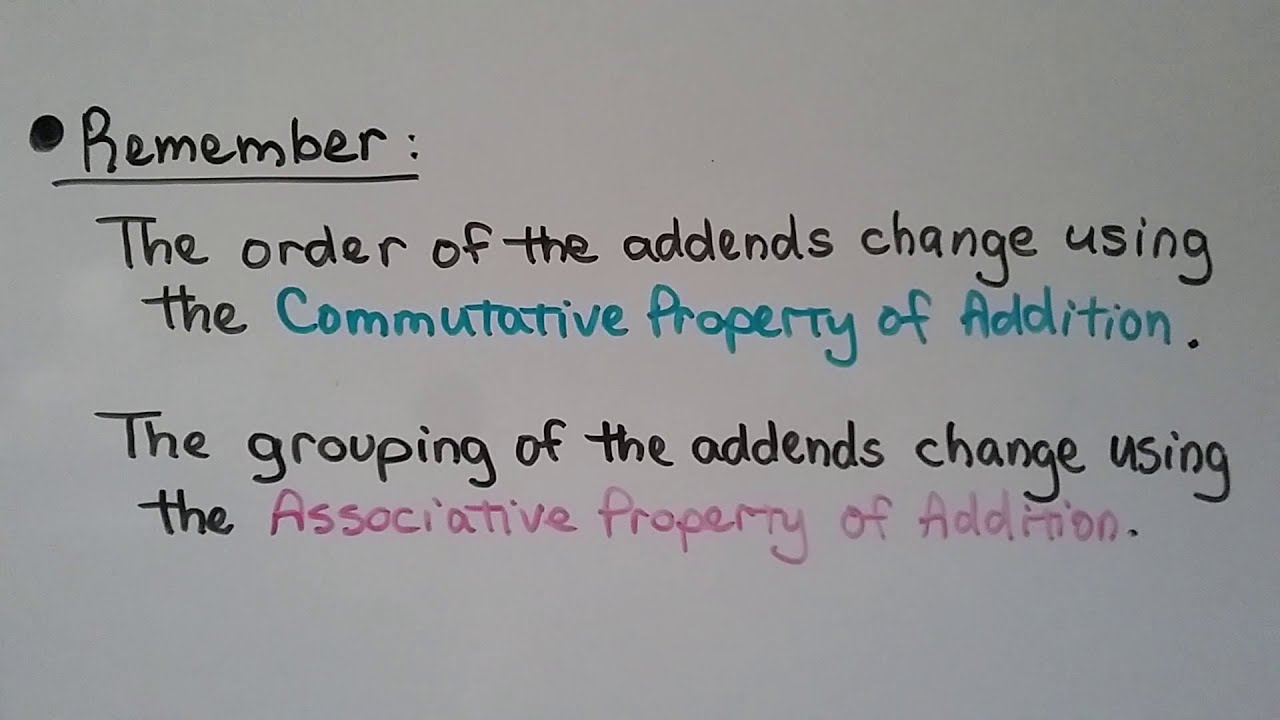 • Remember:
The order of the addends change using
the Commutative Property of Addition.
The grouping of the addends change using
the Associative Property of Addition.